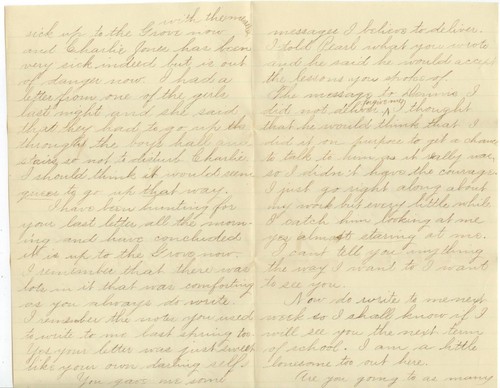 with the measles
sick up to the Grove now
and Charlie Jones has been
very sick indeed but is out
of danger now. I had a
letter from one of the girls
last night and she said
that they had to go up the
through the boys hall and
stairs so not to disturb Charlie
I should think it would seem
queer to go up that way.
I have been hunting for
your last letter all the morn-
ing and have concluded
it is up to the Grove now.
I remember that there was
lots in it that was comforting
as you always do write.
I remember the notes you used
to write to me last spring too
Yes your letter was just sweet
like your own darling self.
You gave me some
messages I believe to deliver.
I told Pearl what you wrote
and he said he would accept
the lessons you spoke of.
The message to I
did not deliver I thought
that he would think that I
did it on purpose to get a chance
to talk to him as it really was,
so I didn't have the courage.
I just go right along about
my work but every little while
I catch him looking at me
yes almost staring at me.
I can't tell you anything
the way I want to I want
to see you.
Now do write to me next
week so I shall know if I
will see you the next term
of school. I am a little
lonesome too out here.
Are you going to as many